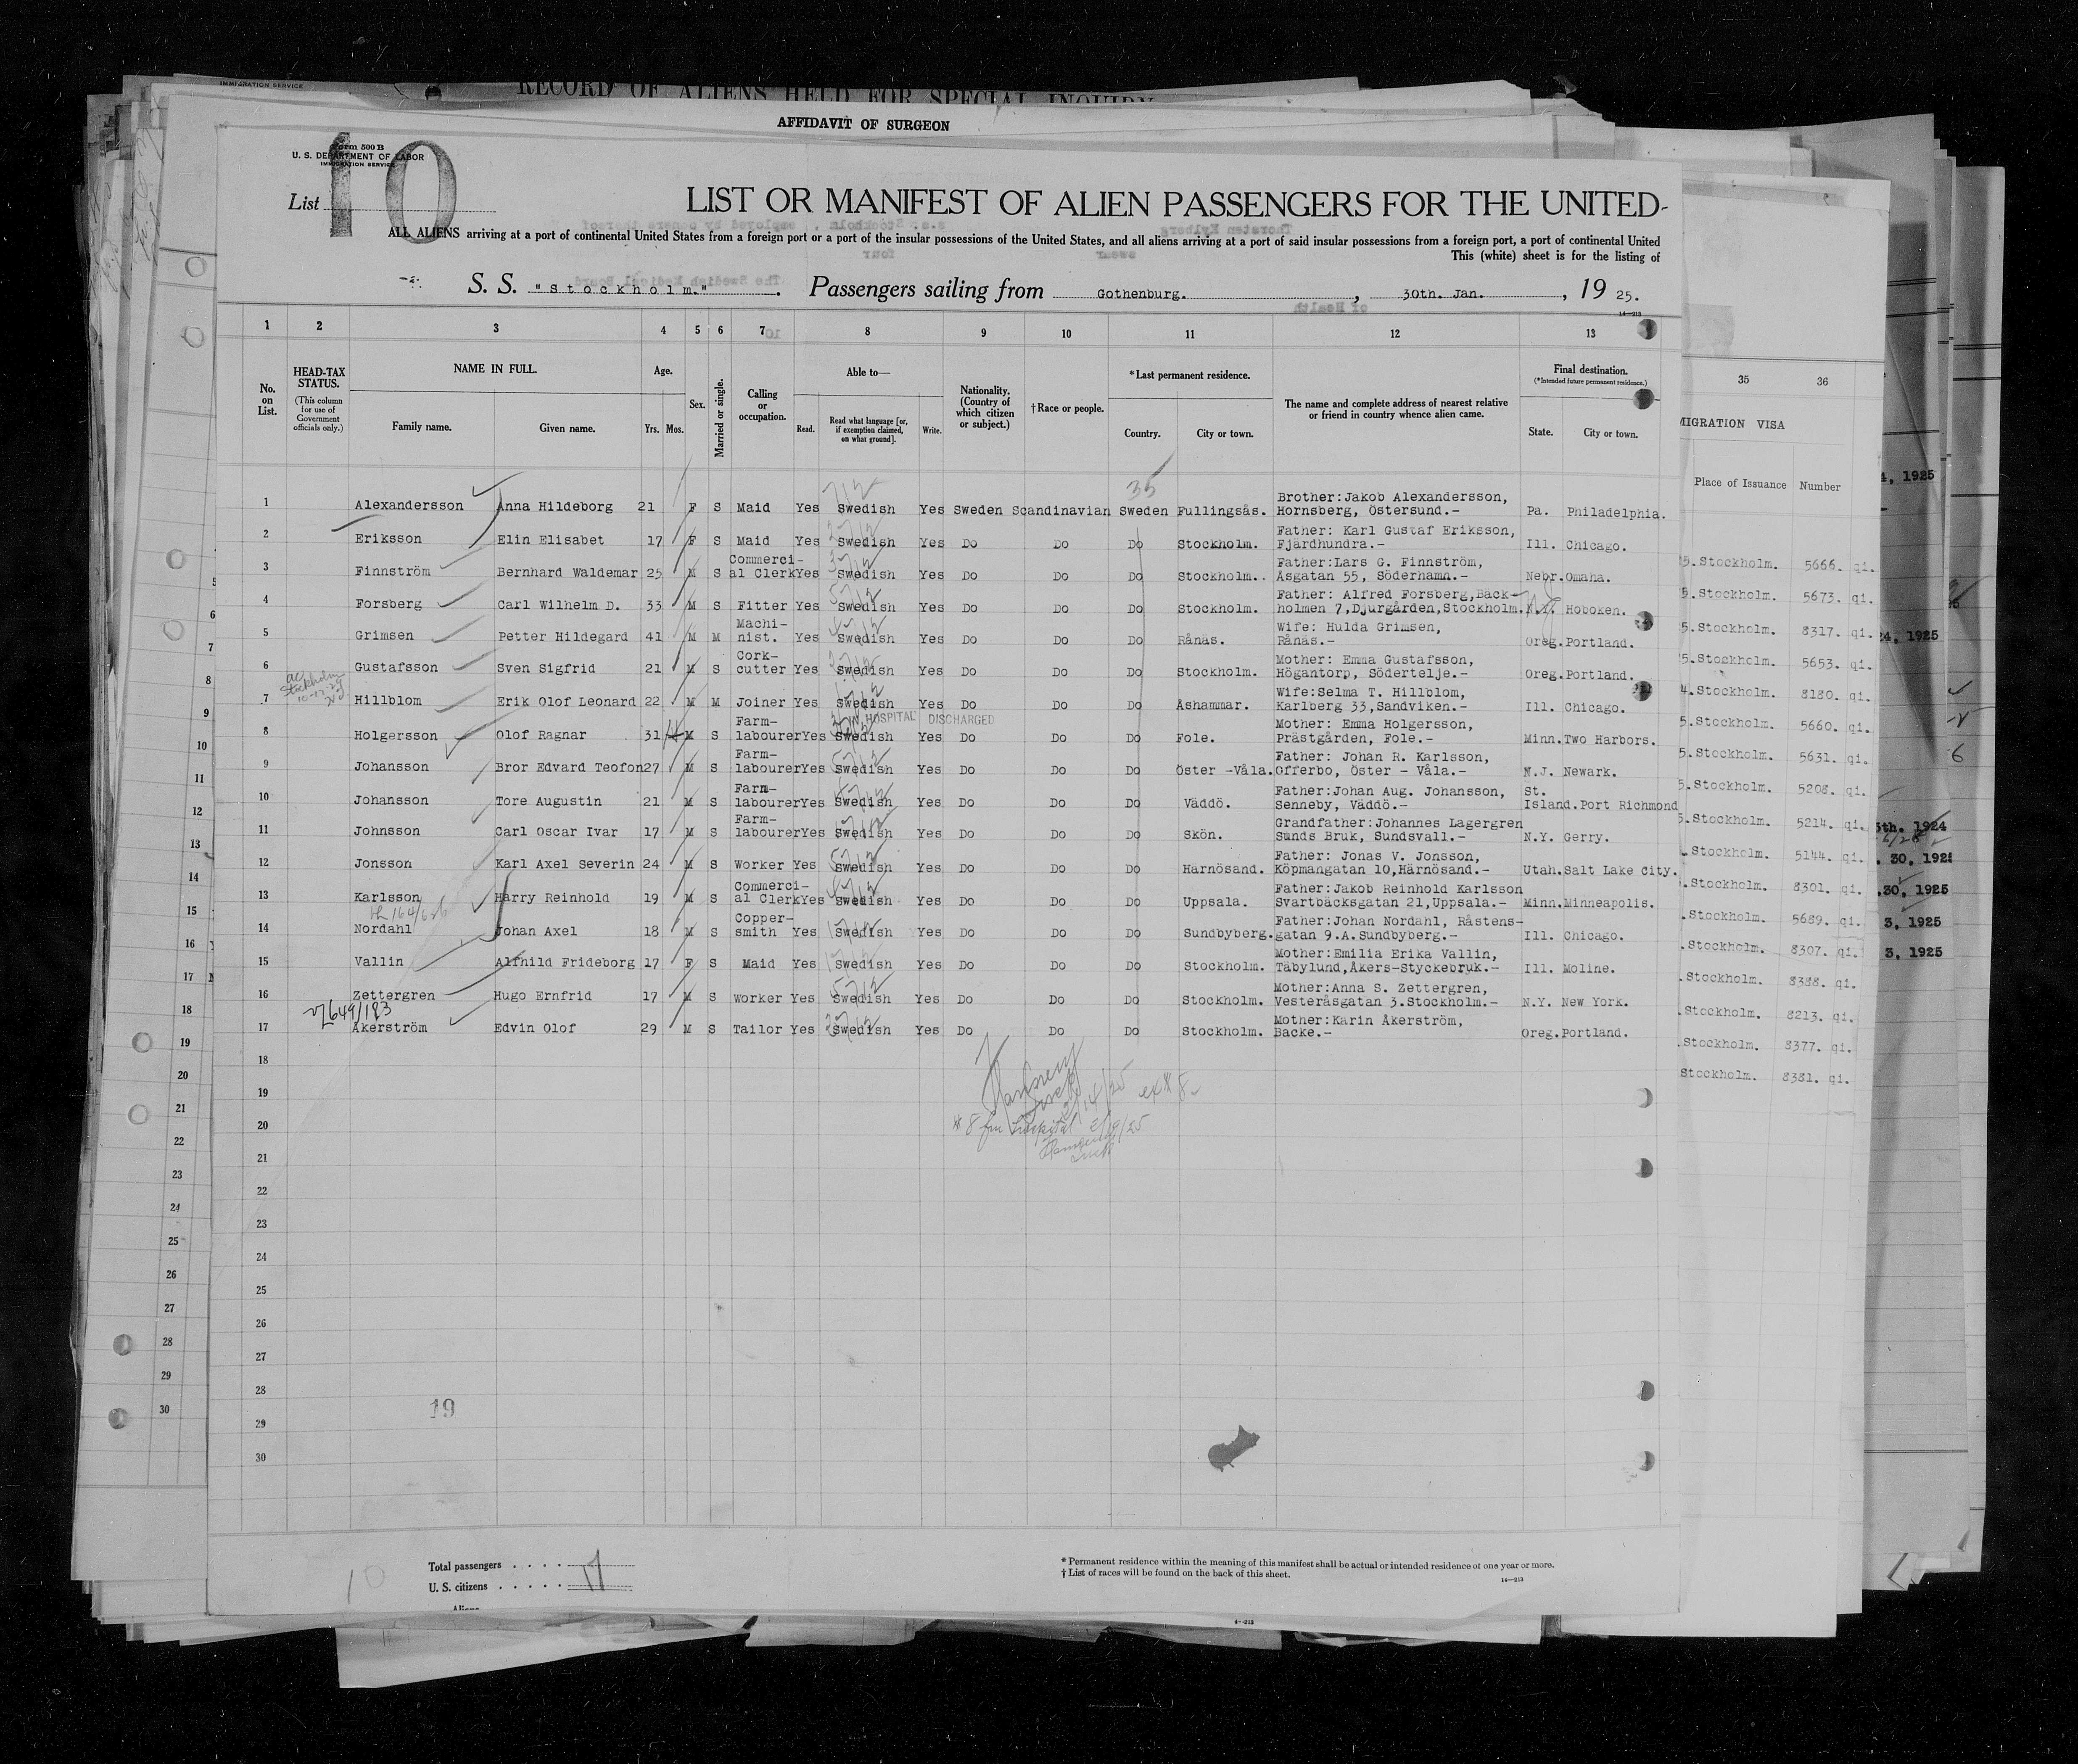 IMMIGRATION SERVICE
RECORD OF ALIENS HELD FOR SPECIAL INQUIRY
AFFIDAVIT OF SURGEON
Form 500 B
U. S. DEPARTMENT OF LABOR
IMMIGRATION SERVICE
List 10
LIST OR MANIFEST OF ALIEN PASSENGERS FOR THE UNITED-
ALL ALIENS arriving at a port of continental United States from a foreign port or a port of the insular possessions of the United States, and all aliens arriving at a port of said insular possessions from a foreign port, a port of continental United
This (white) sheet is for the listing of
S. S. "Stockholm." Passengers sailing from Gothenburg. , 30th. Jan. , 19 25.
14—213
1 2 3 4 5 6 7 8 9 10 11 12 13
No. on List.
HEAD-TAX STATUS. (This column for use of Government officials only.)
NAME IN FULL.
Family name. Given name.
Age.
Yrs. Mos.
Sex.
Married or single.
Calling or occupation.
Able to—
Read. Read what language [or, if exemption claimed, on what ground]. Write.
Nationality. (Country of which citizen or subject.)
† Race or people.
*Last permanent residence.
Country. City or town.
The name and complete address of nearest relative or friend in country whence alien came.
Final destination.
(*Intended future permanent residence.)
State. City or town.
35
1 Alexandersson Anna Hildeborg 21 F S Maid Yes Swedish Yes Sweden Scandinavian Sweden Fullingsås. Brother:Jakob Alexandersson, Hornsberg, Östersund.- Pa. Philadelphia.
2 Eriksson Elin Elisabet 17 F S Maid Yes Swedish Yes Do Do Do Stockholm. Father: Karl Gustaf Eriksson, Fjärdhundra.- Ill. Chicago.
3 Finnström Bernhard Waldemar 25 M S Commerci-al Clerk Yes Swedish Yes Do Do Do Stockholm.. Father:Lars G. Finnström, Asgatan 55, Söderhamn.- Nebr. Omaha.
4 Forsberg Carl Wilhelm D. 33 M S Fitter Yes Swedish Yes Do Do Do Stockholm. Father: Alfred Forsberg,Back-holmen 7,Djurgården,Stockholm. N.Y. Hoboken.
5 Grimsen Petter Hildegard 41 M M Machi-nist. Yes Swedish Yes Do Do Do Rånäs. Wife: Hulda Grimsen, Rånäs.- Oreg. Portland.
6 Gustafsson Sven Sigfrid 21 M S Cork-cutter Yes Swedish Yes Do Do Do Stockholm. Mother: Emma Gustafsson, Högantorp, Södertelje.- Oreg. Portland.
7 Hillblom Erik Olof Leonard 22 M M Joiner Yes Swedish Yes Do Do Do Åshammar. Wife:Selma T. Hillblom, Karlberg 33,Sandviken.- Ill. Chicago.
IN HOSPITAL DISCHARGED
8 Holgersson Olof Ragnar 31 M S Farm-labourer Yes Swedish Yes Do Do Do Fole. Mother: Emma Holgersson, Prästgården, Fole.- Minn. Two Harbors.
9 Johansson Bror Edvard Teofon 27 M S Farm-labourer Yes Swedish Yes Do Do Do Öster -Våla. Father: Johan R. Karlsson, Offerbo, Öster - Våla.- N.J. Newark.
10 Johansson Tore Augustin 21 M S Farm-labourer Yes Swedish Yes Do Do Do Väddö. Father:Johan Aug. Johansson, Senneby, Väddö.- St. Island. Port Richmond
11 Johnsson Carl Oscar Ivar 17 M S Farm-labourer Yes Swedish Yes Do Do Do Skön. Grandfather:Johannes Lagergren Sunds Bruk, Sundsvall.- N.Y. Gerry.
12 Jonsson Karl Axel Severin 24 M S Worker Yes Swedish Yes Do Do Do Härnösand. Father: Jonas V. Jonsson, Köpmangatan 10,Härnösand.- Utah. Salt Lake City.
13 Karlsson Harry Reinhold 19 M S Commerci-al Clerk Yes Swedish Yes Do Do Do Uppsala. Father:Jakob Reinhold Karlsson Svartbäcksgatan 21,Uppsala.- Minn. Minneapolis.
14 Nordahl Johan Axel 18 M S Copper-smith Yes Swedish Yes Do Do Do Sundbyberg. Father:Johan Nordahl, Råstens-gatan 9.A.Sundbyberg.- Ill. Chicago.
15 Vallin Alfhild Frideborg 17 F S Maid Yes Swedish Yes Do Do Do Stockholm. Mother:Emilia Erika Vallin, Täbylund,Åkers-Styckebruk.- Ill. Moline.
16 Zettergren Hugo Ernfrid 17 M S Worker Yes Swedish Yes Do Do Do Stockholm. Mother:Anna S. Zettergren, Vesteråsgatan 3.Stockholm.- N.Y. New York.
649/193
17 Åkerström Edvin Olof 29 M S Tailor Yes Swedish Yes Do Do Do Stockholm. Mother:Karin Åkerström, Backe.- Oreg. Portland.
18
19
20
# 8 fm Hospital 2/14/25
21
22
23
24
25
26
27
28
29
30
19
10
Total passengers . . . . 17
U. S. citizens . . . . .
* Permanent residence within the meaning of this manifest shall be actual or intended residence of one year or more.
† List of races will be found on the back of this sheet.
14—213
35 36
MIGRATION VISA
Place of Issuance Number
5.Stockholm. 5666. qi.
5.Stockholm. 5673. qi.
5.Stockholm. 8317. qi.
5.Stockholm. 5653. qi.
4.Stockholm. 8180. qi.
5.Stockholm. 5660. qi.
5.Stockholm. 5631. qi.
5.Stockholm. 5208. qi.
5.Stockholm. 5214. qi.
.Stockholm. 5144. qi.
.Stockholm. 8301. qi.
.Stockholm. 5689. qi.
.Stockholm. 8307. qi.
.Stockholm. 8388. qi.
.Stockholm. 8213. qi.
.Stockholm. 8377. qi.
Stockholm. 8381. qi.
4, 1925
24, 1925
5th. 1924
. 30, 1925
.30, 1925
3, 1925
3, 1925
5
6
7
8
9
10
11
12
13
14
15
16
17
18
19
20
21
22
23
24
25
26
27
28
29
30